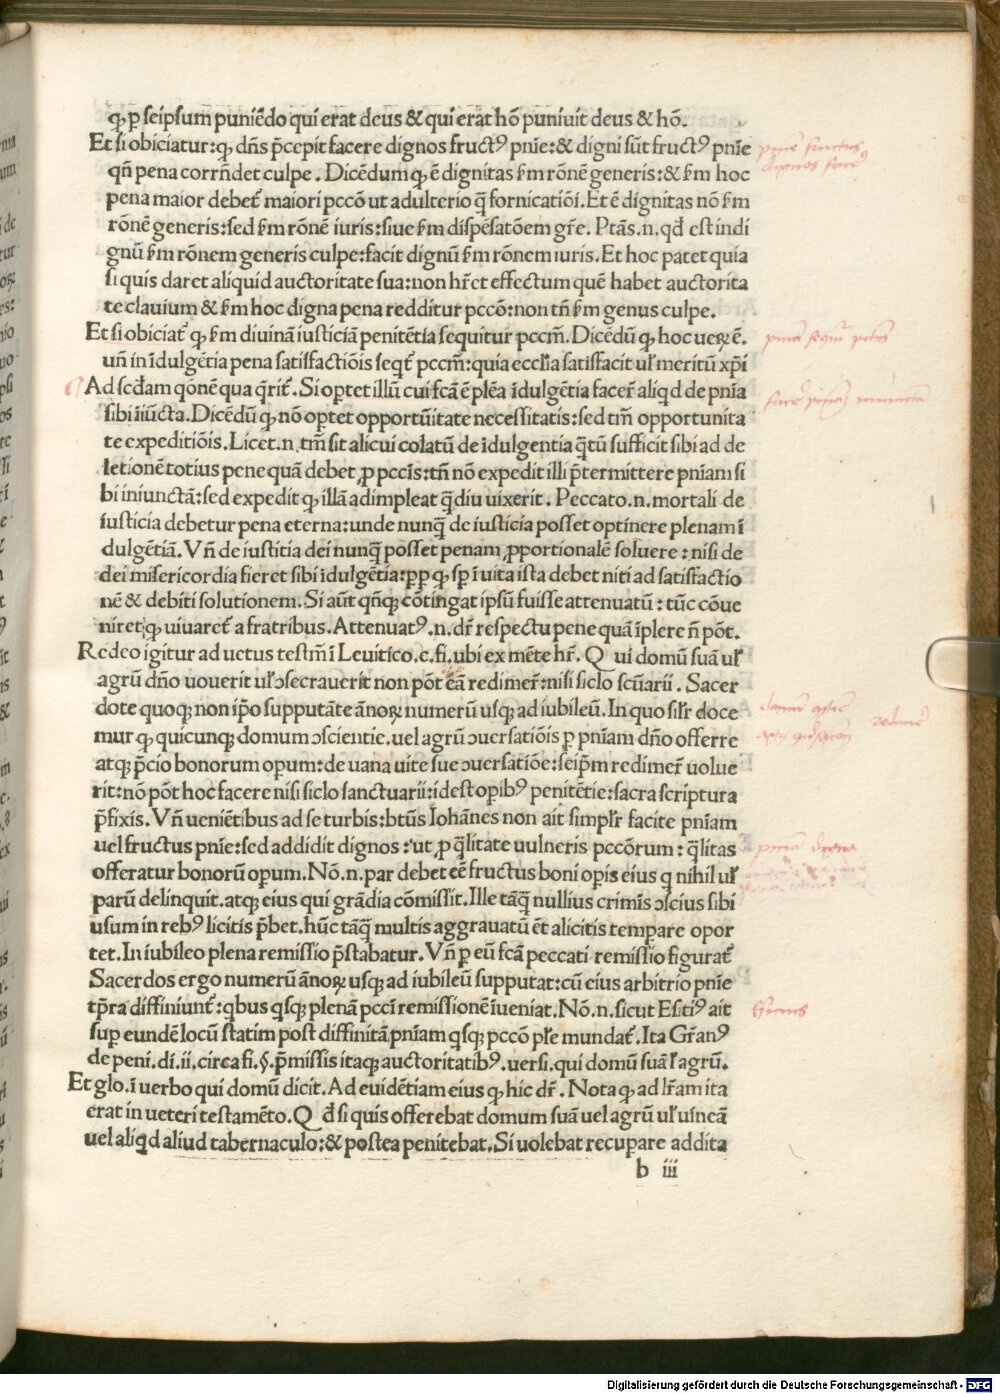 ꝙ ꝑ seipsum puniẽdo qui erat deus & qui erat hõ puniuit deus & hõ.
Et si obiciatur: ꝙ dñs p̃cepit facere dignos fructꝰ pñie: & digni sũt fructꝰ pñie
qñ pena corrñdet culpe. Dicẽdum ꝙ ẽ dignitas ẜm rõnẽ generis: & ẜm hoc
pena maior debet᷑ maiori pccõ ut adulterio q̃ fornicatiõi. Et ẽ dignitas nõ ẜm
rõnẽ generis: sed ẜm rõnẽ iuris: siue ẜm dispẽsatõem gr̃e. Ptãs .n. qđ est indi
gnũ ẜm rõnem generis culpe: facit dignũ ẜm rõnem iuris. Et hoc patet quia
si quis daret aliquid auctoritate sua: non hr̃et effectum quẽ habet auctorita
te clauium & ẜm hoc digna pena redditur pccõ: non tñ ẜm genus culpe.
Et si obiciat᷑ ꝙ ẜm diuinã iusticiã penitẽtia sequitur pccm̃. Dicẽdũ ꝙ hoc ueꝝ ẽ.
uñ in ĩdulgẽtia pena satisfactiõis seqt᷑ pccm̃: quia eccl̃ia satisfacit uł meritũ xp̃i
Ad scđam qõnẽ qua q̃rit᷑. Si oꝑtet illũ cui fcã ẽ plẽa ĩdulgẽtia facer̃ aliqd de pñia
sibi ĩiũcta. Dicẽdũ ꝙ nõ oꝑtet opportũitate necessitatis: sed tm̃ opportunita
te expeditiõis. Licet .n. tm̃ sit alicui colatũ de ĩdulgentia q̃tũ sufficit sibi ad de
letionẽ totius pene quã debet ꝓ pccĩs: tñ nõ expedit illi p̃termittere pñiam si
bi iniunctã: sed expedit ꝙ illã adimpleat q̃diu uixerit. Peccato .n. mortali de
iusticia debetur pena eterna: unde nunq̃ de iusticia posset optinere plenam ĩ
dulgẽtiã. Vñ de iustitia dei nunq̃ posset penam ꝓportionalẽ soluere: nisi de
dei misericordia fieret sibi ĩdulgẽtia: ꝓp ꝙ sꝑ ĩ uita ista debet niti ad satisfactio
nẽ & debiti solutionem. Si aũt qñꝗ cõtingat ipsũ fuisse attenuatũ: tũc cõue
niret ꝙ uiuaret᷑ a fratribus. Attenuatꝰ .n. dr̃ respectu pene quã ĩplere ñ põt.
Redeo igitur ad uetus testm̃ ĩ Leuitico .c. fi. ubi ex mẽte hr̃. Qui domũ suã uł
agrũ dño uouerit uł ↄsecrauerit non põt eã redimer̃: nisi siclo scũarii. Sacer
dote quoqꝫ non ip̃o supputãte ãnoꝝ numerũ usqꝫ ad iubileũ. In quo sil̃r doce
mur ꝙ quicunqꝫ domum ↄscientie. uel agrũ ↄuersatiõis ꝑ pñiam dño offerre
atqꝫ p̃cio bonorum opum: de uana uite sue ↄuersatiõe: seip̃m redimer̃ uolue
rit: nõ põt hoc facere nisi siclo sanctuarii: idest opibꝰ penitẽtie: sacra scriptura
p̃fixis. Vñ ueniẽtibus ad se turbis: btũs Iohãnes non ait simpl̃r facite pñiam
uel fructus pñie: sed addidit dignos: ut ꝓ q̃litate uulneris pccõrum: q̃litas
offeratur bonorũ opum. Nõ .n. par debet eẽ fructus boni opis eius q̃ nihil uł
parũ delinquit. atqꝫ eius qui grãdia cõmissit. Ille tãq̃ nullius crimĩs ↄscius sibi
usum in rebꝰ licitis p̃bet. hũc tãq̃ multis aggrauatũ ẽt alicitis tempare opor
tet. In iubileo plena remissio p̃stabatur. Vñ ꝑ eũ fcã peccati remissio figurat᷑
Sacerdos ergo numerũ ãnoꝝ usqꝫ ad iubileũ supputat: cũ eius arbitrio pñie
tp̃ra diffiniunt᷑: qbus qsqꝫ plenã pccĩ remissionẽ ĩueniat. Nõ .n. sicut Esitiꝰ ait
suꝑ eundẽ locũ statim post diffinitã pñiam qsqꝫ pccõ pl̃e mundat᷑. Ita Gr̃anꝰ
de peni. di. ii. circa fi. §. p̃missis itaqꝫ auctoritatibꝰ. uersi. qui domũ suã uł agrũ.
Et glo. ĩ uerbo qui domũ dicit. Ad euidẽtiam eius ꝙ hic dr̃. Nota ꝙ ad lr̃am ita
erat in ueteri testamẽto. Qđ si quis offerebat domum suã uel agrũ uł uineã
uel aliqd aliud tabernaculo: & postea penitebat. Si uolebat recuꝑare addita
b iii
Digitalisierung gefördert durch die Deutsche Forschungsgemeinschaft - DFG